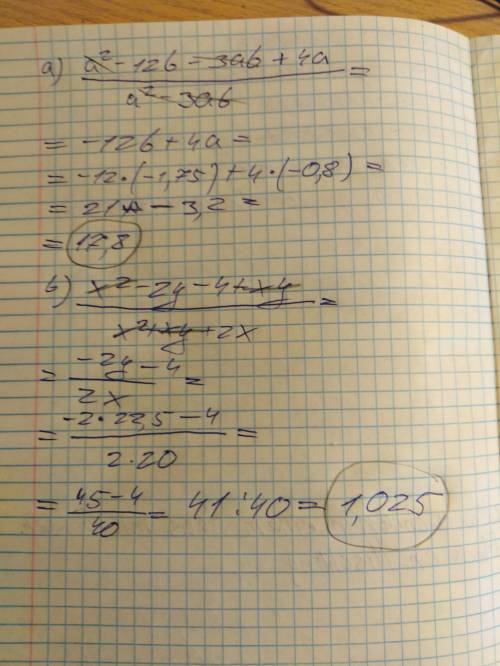 а) (a² - 12b - 3ab + 4a)/(a² - 3ab) =
= -12b + 4a =
= -12·(-1,75) + 4·(-0,8) =
= 21 - 3,2 =
= 17,8
в) (x² - 2y - 4 + xy)/(x² + xy + 2x) =
= (-2y - 4)/(2x) =
= (-2·22,5 - 4)/(2·20) =
= (45 - 4)/40 = 41:40 = 1,025